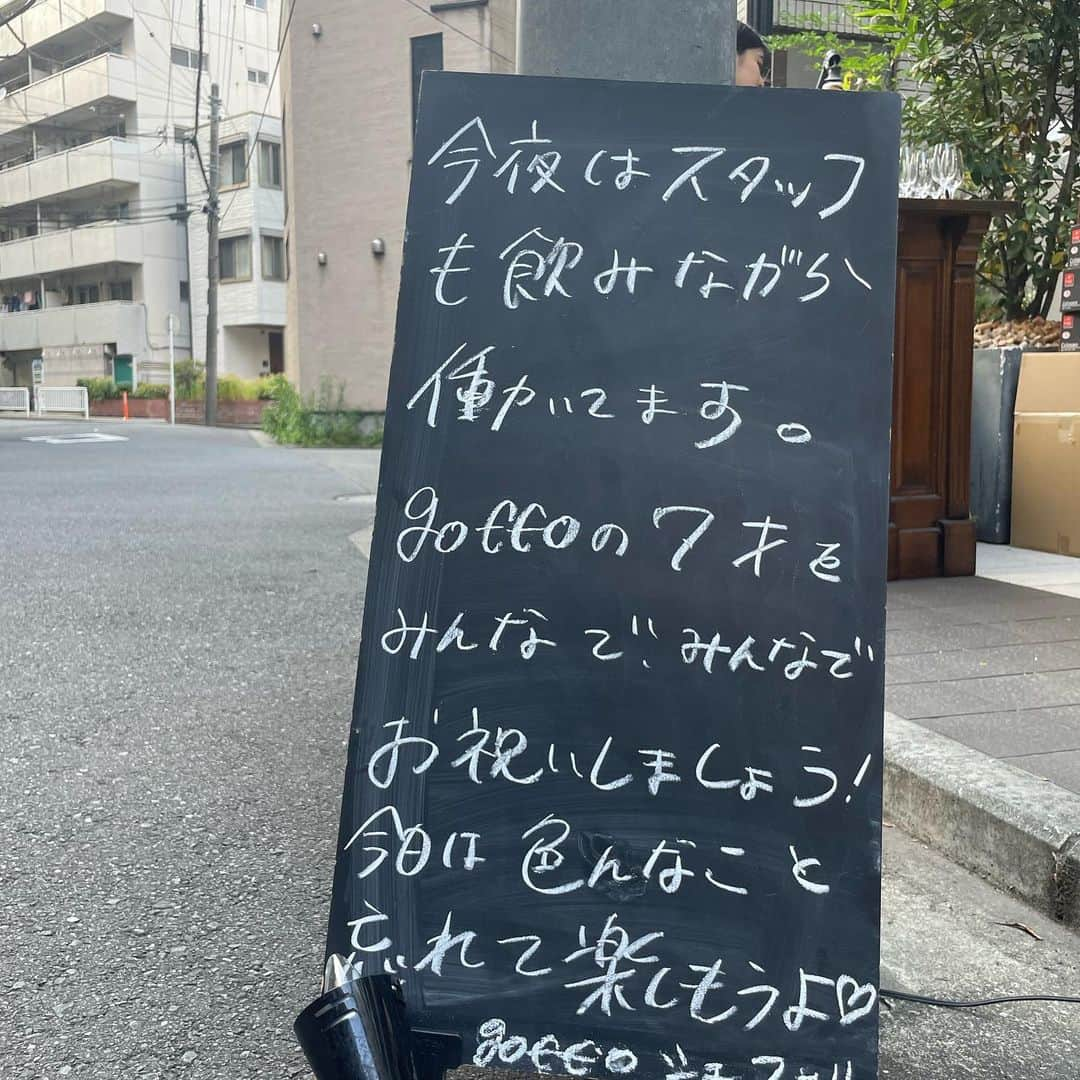 今夜はスタッフ
も飲みながら
働いてます。
gottoの7才を
みんなで、みんなで
お祝いしましょう!
今日は色んなこと
忘れて楽しもうよ♡
gotto